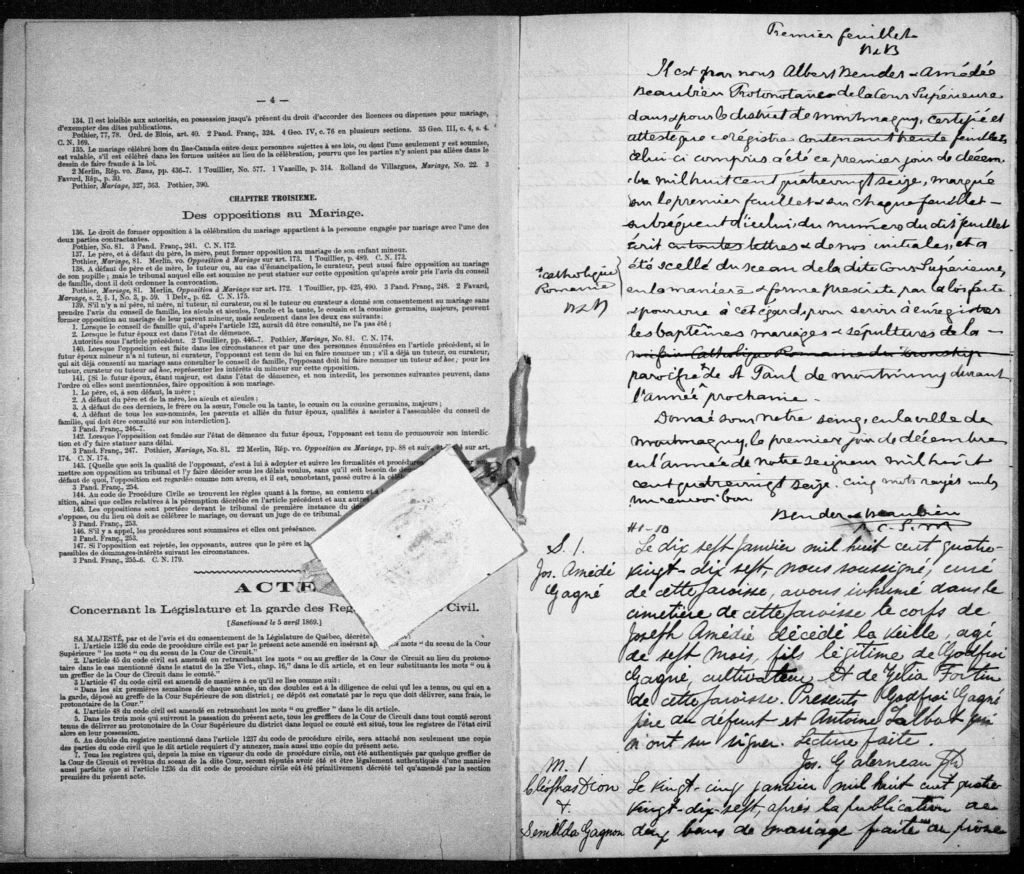 — 4 —
134. Il est loisible aux autorités, en possession jusqu'à présent du droit d'accorder des licences ou dispenses pour mariage,
d'exempter des dites publications.
Pothier, 77, 78. Ord. de Blois, art. 40. 2 Pand. Franç., 324. 4 Geo. IV, c. 76 en plusieurs sections. 35 Geo. III, c. 4, s. 4.
C. N. 169.
135. Le mariage célébré hors du Bas-Canada entre deux personnes sujettes à ses lois, ou dont l'une seulement y est soumise,
est valable, s'il est célébré dans les formes usitées au lieu de la célébration, pourvu que les parties n'y soient pas allées dans le
dessin de faire fraude à la loi.
2 Merlin, Rép. vo. Bans, pp. 436-7. 1 Touillier, No. 577. 1 Vazeille, p. 314. Rolland de Villargues, Mariage, No. 22. 3
Favard, Rép., p. 30.
Pothier, Mariage, 327, 363. Pothier, 390.
CHAPITRE TROISIEME.
Des oppositions au Mariage.
136. Le droit de former opposition à la célébration du mariage appartient à la personne engagée par mariage avec l'une des
deux parties contractantes.
Pothier, No. 81. 3 Pand. Franç., 241. C. N. 172.
137. Le père, et à défaut du père, la mère, peut former opposition au mariage de son enfant mineur.
Pothier, Mariage, 81. Merlin, vo. Opposition à Mariage sur art. 173. 1 Touillier, p. 489. C. N. 173.
138. A défaut de père et de mère, le tuteur ou, au cas d'émancipation, le curateur, peut aussi faire opposition au mariage
de son pupille; mais le tribunal auquel elle est soumise ne peut statuer sur cette opposition qu'après avoir pris l'avis du conseil
de famille, dont il doit ordonner la convocation.
Pothier, Mariage, 81. Merlin, Opposition à Mariage sur art. 172. 1 Touillier, pp. 425, 490. 3 Pand. Franç., 248. 2 Favard,
Mariage, s. 2, § 1, No. 3, p. 59. 1 Delv., p. 62. C. N. 175.
139. S'il n'y a ni père, ni mère, ni tuteur, ni curateur, ou si le tuteur ou curateur a donné son consentement au mariage sans
prendre l'avis du conseil de famille, les aïeuls et aïeules, l'oncle et la tante, le cousin et la cousine germains, majeurs, peuvent
former opposition au mariage de leur parent mineur, mais seulement dans les deux cas suivants:
1. Lorsque le conseil de famille qui, d'après l'article 122, aurait dû être consulté, ne l'a pas été;
2. Lorsque le futur époux est dans l'état de démence.
Autorités sous l'article précédent. 2 Touillier, pp. 446-7. Pothier, Mariage, No. 81. C. N. 174.
140. Lorsque l'opposition est faite dans les circonstances et par une des personnes énumérées en l'article précédent, si le
futur époux mineur n'a ni tuteur, ni curateur, l'opposant est tenu de lui en faire nommer un; s'il a déjà un tuteur, ou curateur,
qui ait déjà consenti au mariage sans consulter le conseil de famille, l'opposant doit lui faire nommer un tuteur ad hoc, pour les
tuteur, curateur ou tuteur ad hoc, représenter les intérêts du mineur sur cette opposition.
141. [Si le futur époux, étant majeur, est dans l'état de démence, et non interdit, les personnes suivantes peuvent, dans
l'ordre où elles sont mentionnées, faire opposition à son mariage.
1. Le père, et, à son défaut, la mère;
2. A défaut du père et de la mère, les aïeuls et aïeules;
3. A défaut de ces derniers, le frère ou la sœur, l'oncle ou la tante, le cousin ou la cousine germains, majeurs;
4. A défaut de tous les sus-nommés, les parents et alliés du futur époux, qualifiés à assister à l'assemblée du conseil de
famille, qui doit être consulté sur son interdiction].
3 Pand. Franç., 246-7.
142. Lorsque l'opposition est fondée sur l'état de démence du futur époux, l'opposant est tenu de promouvoir son interdic-
tion et d'y faire statuer sans délai.
3 Pand. Franç., 247. Pothier, Mariage, No. 81. 22 Merlin, Rép. vo. Opposition au Mariage, pp. 88 et suiv. sur art.
174. C. N. 174.
143. [Quelle que soit la qualité de l'opposant, c'est à lui à adopter et suivre les formalités et procédures
mettre son opposition au tribunal et l'y faire décider sous les délais voulus, sans qu'il soit besoin de
défaut de quoi, l'opposition est regardée comme non avenue, et il est, nonobstant, passé outre à la célé
3 Pand. Franç. 254.
144. Au code de Procédure Civile se trouvent les règles quant à la forme, au contenu et à
sition, ainsi que celles relatives à la péremption décrétée en l'article précédent et aux autres
145. Les oppositions sont portées devant le tribunal de première instance du do
s'oppose, ou du lieu où doit se célébrer le mariage, ou devant un juge de ce tribunal.
3 Pand. Franç., 253.
146. S'il y a appel, les procédures sont sommaires et elles ont préséance.
3 Pand. Franç., 253.
147. Si l'opposition est rejetée, les opposants, autres que le père et la
passibles de dommages-intérêts suivant les circonstances.
3 Pand. Franç., 255-6. C. N. 179.
ACTE
Concernant la Législature et la garde des Reg Civil.
[Sanctionné le 5 avril 1869.]
SA MAJESTÉ, par et de l'avis et du consentement de la Législature de Québec, décrète
1. L'article 1236 du code de procédure civile est par le présent acte amendé en insérant après les mots " du sceau de la Cour
Supérieure " les mots " ou du sceau de la Cour de Circuit.
2. L'article 45 du code civil est amendé en retranchant les mots " ou au greffier de la Cour de Circuit au lieu du protono-
taire dans le cas mentionné dans le statut de la 25e Vict, chap. 16," dans le dit article, et en leur substituants les mots " ou à
un greffier de la Cour de Circuit dans le comté."
3 L'article 47 du code civil est amendé de manière à ce qu'il se lise comme suit:
" Dans les six premières semaines de chaque année, un des doubles est à la diligence de celui qui les a tenus, ou qui en a
la garde, déposé au greffe de la Cour Supérieure de son district; ce dépôt est constaté par le reçu que doit délivrer, sans frais, le
protonotaire de la Cour."
4. L'article 48 du code civil est amendé en retranchant les mots " ou greffier " dans le dit article.
5. Dans les trois mois qui suivront la passation du présent acte, tous les greffiers de la Cour de Circuit dans tout comté seront
tenus de délivrer au protonotaire de la Cour Supérieure du district dans lequel ce comté est situé, tous les registres de l'état civil
alors en leur possession.
6. Au double du registre mentionné dans l'article 1237 du code de procédure civile, sera attaché non seulement une copie des
parties du code civil que le dit article requiert d'y annexer, mais aussi une copie du présent acte.
7. Tous les registres qui, depuis la mise en vigueur du code de procédure civile, ont été authentiqués par quelque greffier de
la Cour de Circuit et revêtus du sceau de la dite Cour, seront réputés avoir été et être légalement authentiqués d'une manière
aussi parfaite que si l'article 1236 du dit code de procédure civile eut été primitivement décrété tel qu'amendé par la section
première du présent acte.
Premier feuillet
B & B
Il est par nous Albert Bender & Amédée
Beaubien Protonotaire de la Cour Supérieure
dans & pour le district de Montmagny, certifié et
attesté que ce régistre contenant trente feuillets,
celui ci compris a été ce premier jour de décem-
bre mil huit cent quatrevingt seize, marqué
sur le premier feuillet & sur chaque feuillet
subséquent d'icelui, du numéro du dit feuillet
écrit en toutes lettres & de nos initiales, et a
été scellé du sceau de la dite Cour Supérieure,
en la manière & forme prescrite par la loi faite
& pourvue à cet égard, pour servir à enregistrer
les baptêmes mariages & sépultures de la
mission Catholique Romaine du township
paroisse de St Paul de Montminy durant
l'année prochaine.
catholique
Romaine
B & B
Donné sous notre seing, en la ville de
Montmagny, le premier jour de décembre
en l'année de notre seigneur mil huit
cent quatrevingt seize. Cinq mots rayés nuls
un renvoi bon
Bender & Beaubien
P. C. S. M
S. 1.
Jos. Amédé
Gagné
Le dix sept janvier mil huit cent quatre-
vingt-dix sept, nous soussigné, curé
de cette paroisse, avons inhumé dans le
cimetière de cette paroisse le corps de
Joseph Amédié décédé la veille, agé
de sept mois, fils légitime de Godfroi
Gagné, cultivateur et de Zélia Fortin
de cette paroisse. Présents Godfroi Gagné
père du défunt et Antoine Talbot qui
n'ont su signer. Lecture faite.
Jos. Galerneau Ptr
M. 1
Cléophas Dion
&
Semilda Gagnon
Le vingt-cinq janvier mil huit cent quatre
vingt-dix-sept, après la publication de
deux bans de mariage faite au prône